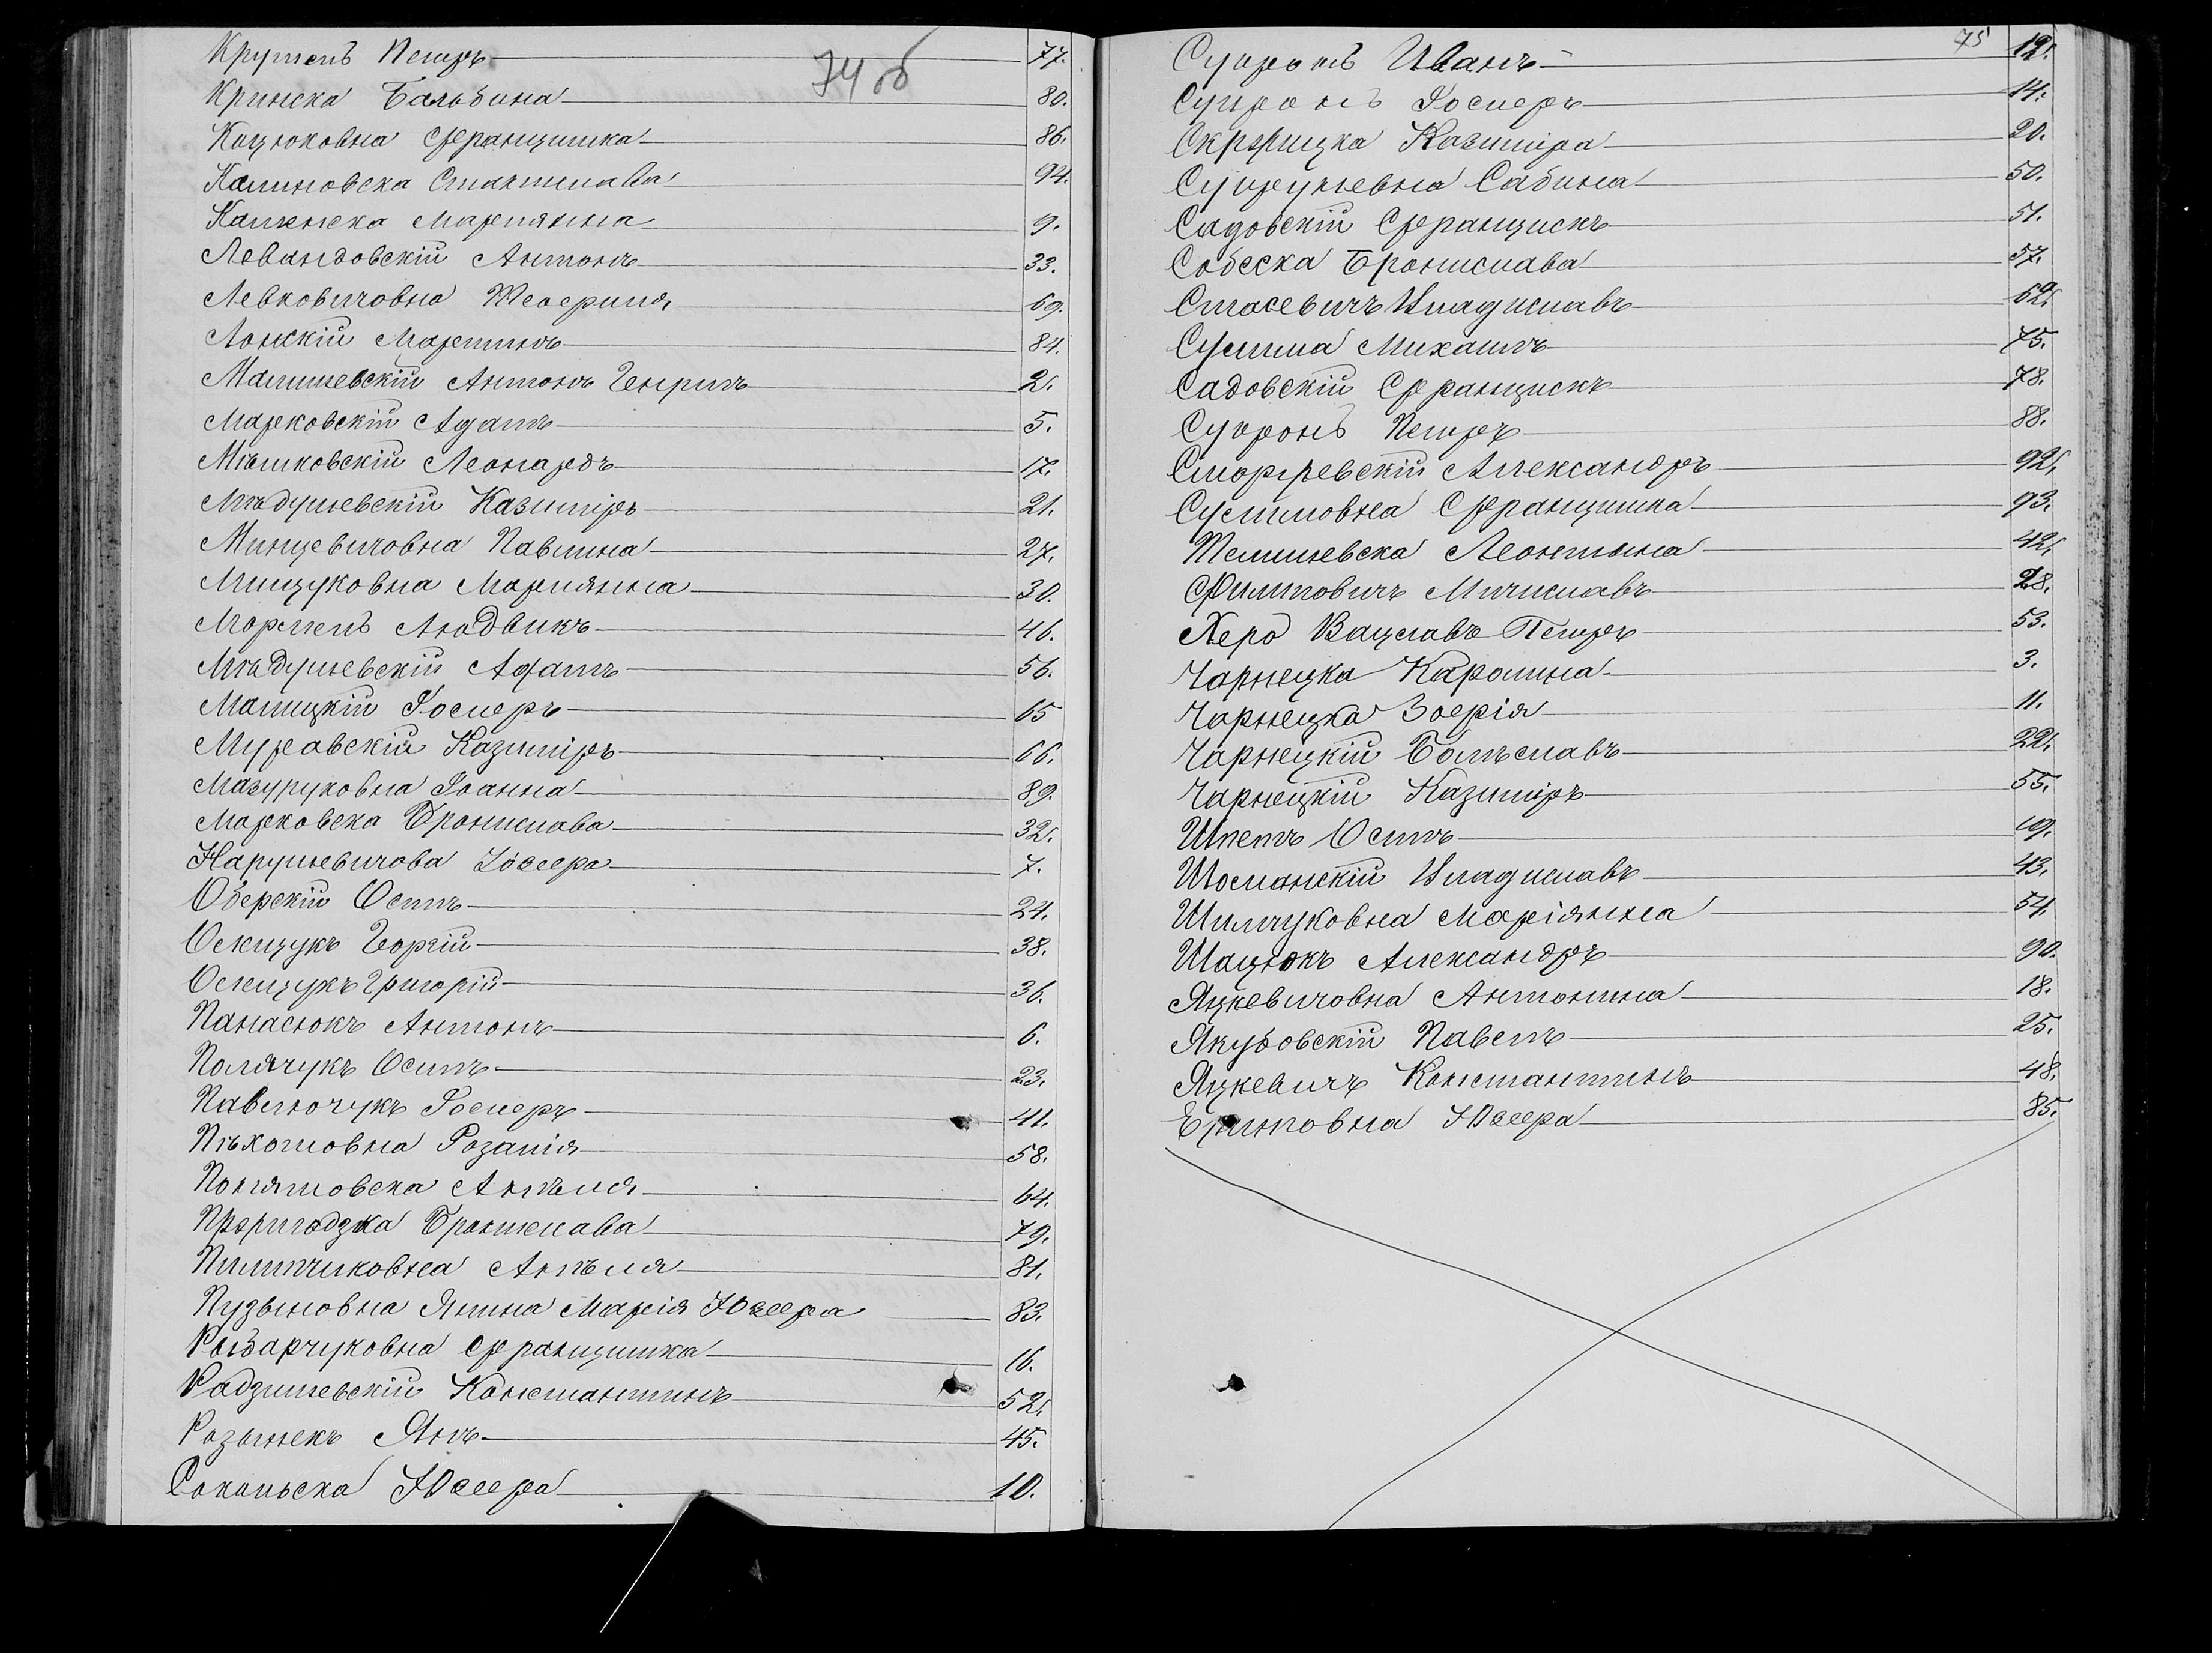 74 об
Крутель Петръ 77.
Кринска Бальбина 80.
Коцюковна Францишка 86.
Калиновска Станислава 94.
Каминска Маріянна 9.
Левандовскій Антонъ 33.
Левковичовна Теофилія 69.
Лонскій Мартинъ 84.
Малишевскій Антонъ Генрикъ 2.
Марковскій Адамъ 5.
Мѣшковскій Леонардъ 17.
Мѣдушевскій Казиміръ 21.
Минцевичовна Павлина 27.
Мищуковна Маріянна 30.
Мормель Людвикъ 46.
Мѣдушевскій Адамъ 56.
Малицкій Іосифъ 65
Муравскій Казиміръ 66.
Мазуруковна Іоанна 89.
Марковска Бронислава 32.
Нарушевичова Іозефа 7.
Оберскій Осипъ 24.
Олещукъ Георгій 38.
Олещукъ Григорій 36.
Панасюкъ Антонъ 6.
Полячукъ Осипъ 23.
Павлючукъ Іосифъ 41.
Пѣхотовна Розалія 58.
Понятовска Анѣля 64.
Прэригодзка Бронислава 79.
Пилипчиковна Анѣля 81.
Пузыновна Янина Марія Юзефа 83.
Рыбарчуковна Францишка 16.
Радзишевскій Константинъ 52.
Розынекъ Янъ 45.
Сокольска Юзефа 10.
75
Супронъ Иванъ 12.
Супронъ Іосифъ 14.
Скрэрицка Казиміра 20.
Супруневна Сабина 50.
Садовскій Францискъ 51.
Собеска Бронислава 57.
Стасевичъ Владиславъ 62.
Сулима Михаилъ 75.
Садовскій Францискъ 78.
Супронъ Петръ 88.
Александръ 92.
Сулимовна Францишка 93.
Телишевска Леонтына 42.
Филиповичъ Мичиславъ 28.
Херо Вацлавъ Петръ 53.
Чарнецка Каролина 3.
Чарнецка Зофія 11.
Чарнецкій Болѣславъ 22.
Чарнецкій Казиміръ 55.
Шпетъ Осипъ 19.
Шоманскій Владиславъ 43.
Шимчуковна Маріянна 54.
Шацюкъ Александръ 90.
Яцкевичовна Антонина 18.
Якубовскій Павелъ 25.
Яцкевичъ Константинъ 48.
Юзефа 85.